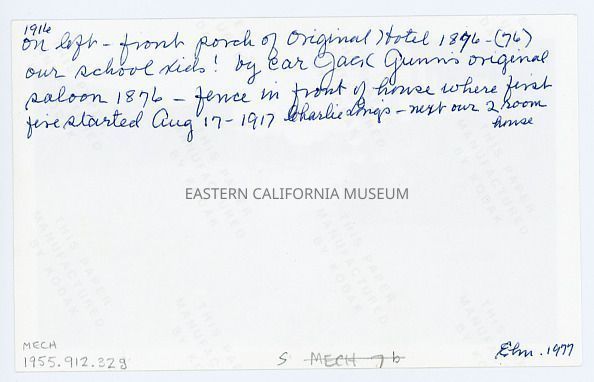 1916
On left - front porch of Original Hotel 1876 - (76)
our school kids! by car Jack Gunn's original
saloon 1876 - fence in front of house where first
fire started Aug 17 - 1917 Charlie - next our 2 room
house
EASTERN CALIFORNIA MUSEUM
THIS PAPER
MANUFACTURED
BY KODAK
MECH
1955.912.329
S MECH 7b
1977